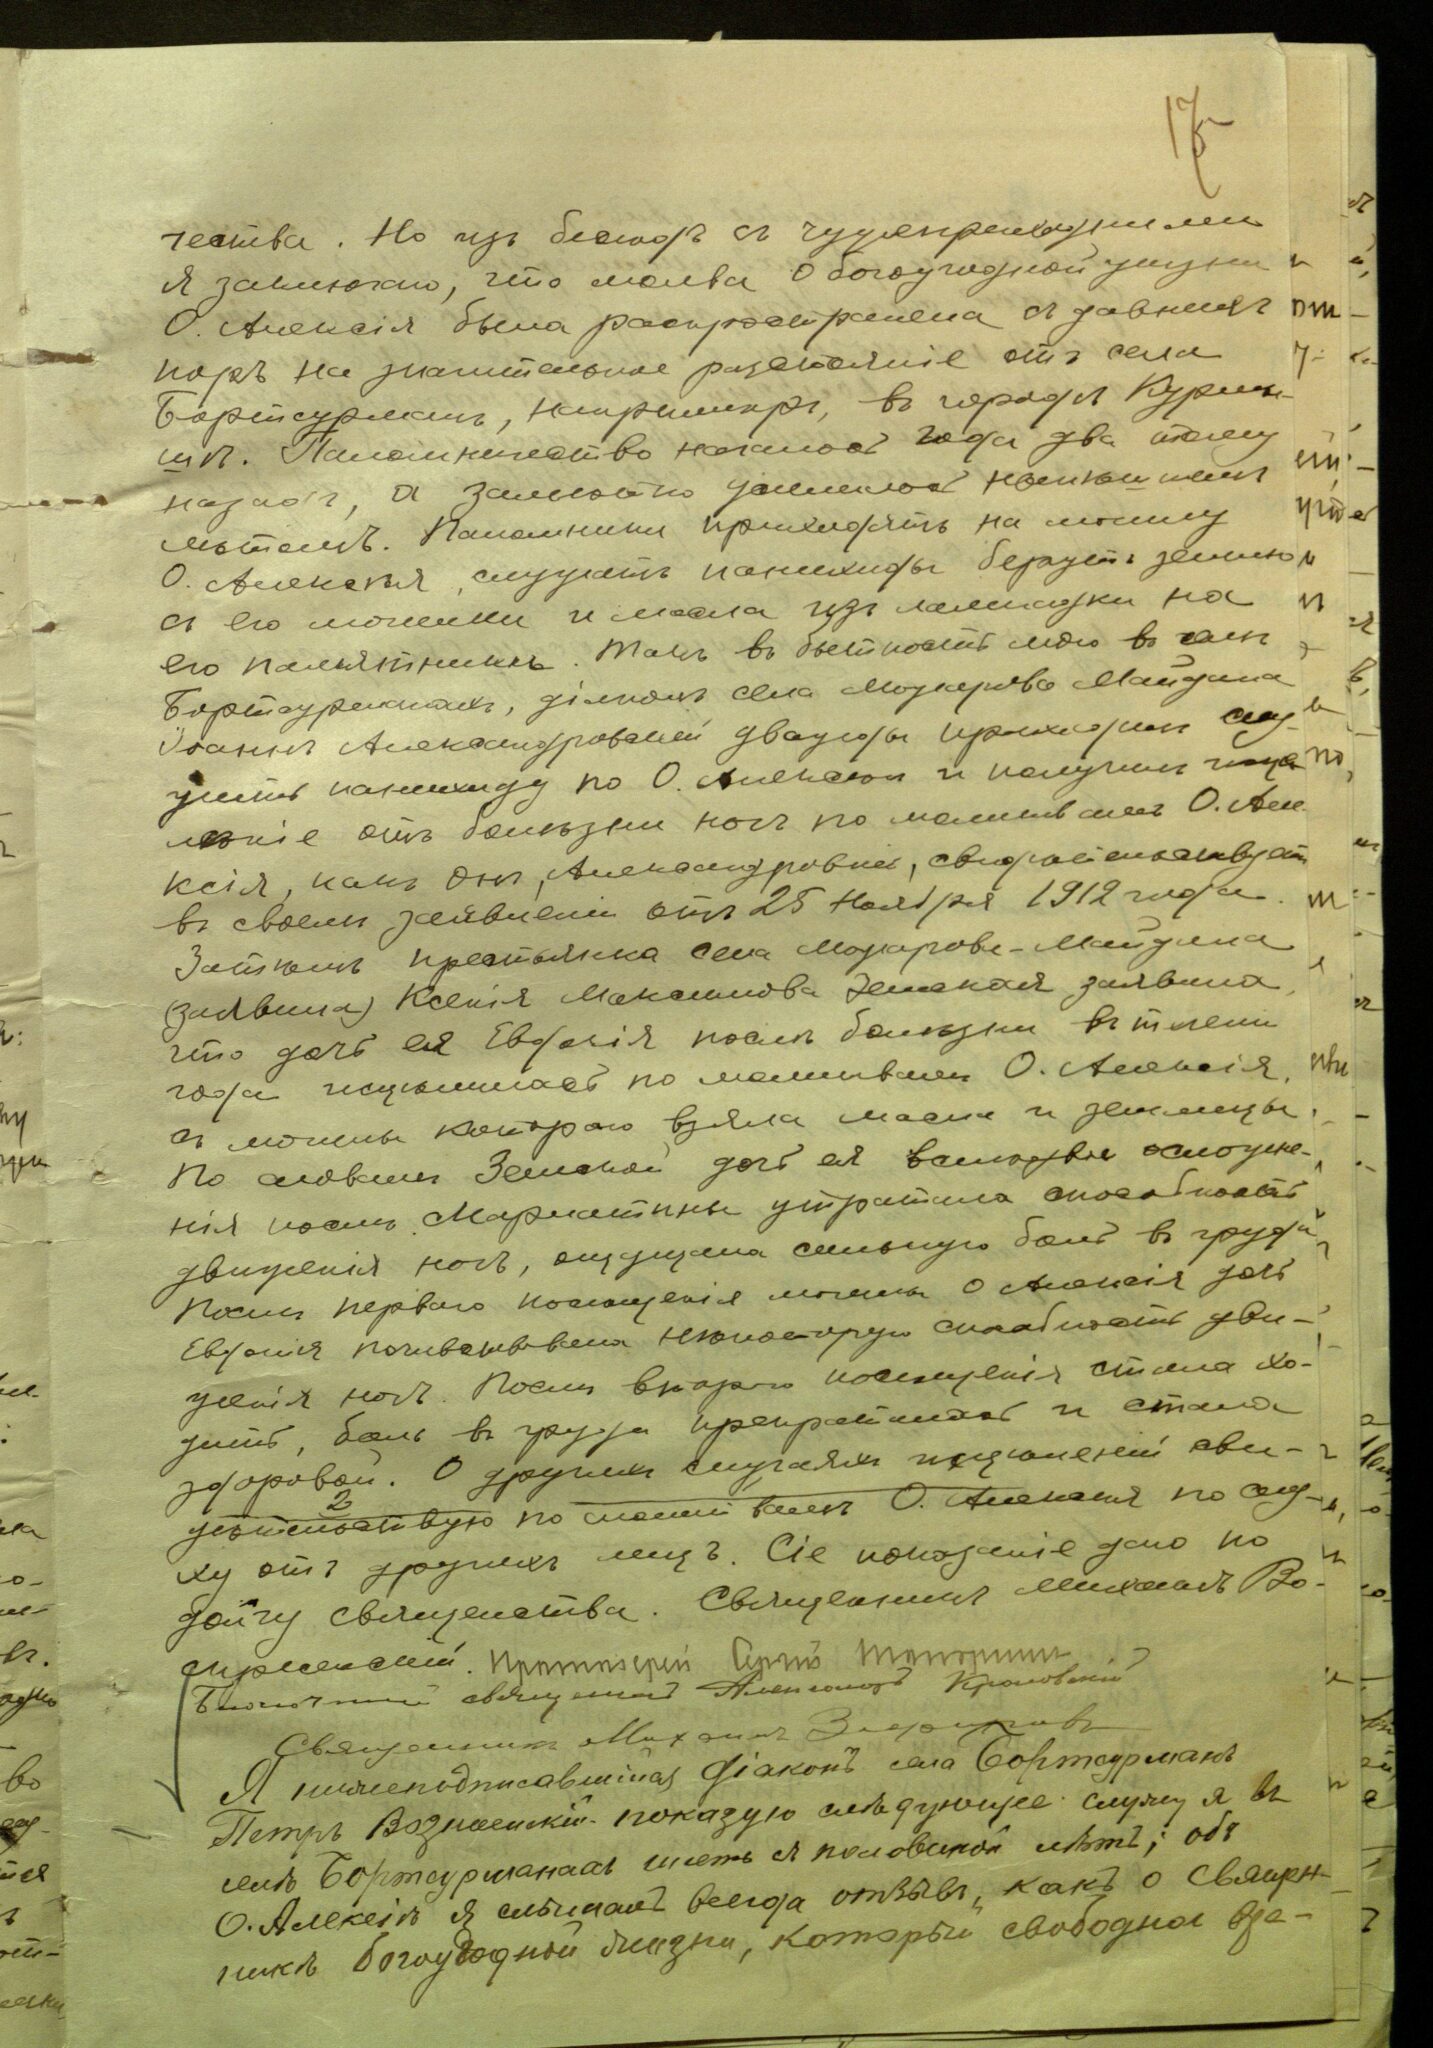 17
чества. Но изъ бесѣдъ съ чужеприходными
я заключаю, что молва о богоугодной жизни
О. Алексія была распространена съ давнихъ
поръ на значительное разстояніе отъ села
Бортсурманъ, напримѣръ, въ городѣ Курмы-
шѣ. Паломничество началось года два тому
назадъ, а замѣтно усилилось нынѣшнимъ
лѣтомъ. Паломники приходятъ на могилу
О. Алексѣя, служатъ панихиды берутъ землю
съ его могилки и масла изъ лампадки на
его памятникѣ. Такъ въ бытность мою въ селѣ
Бортсурманахъ, діаконъ села Можарова Майдана
Іоаннъ Александровскій дважды приходилъ слу-
жить панихиду по О. Алексѣи и получилъ исцѣ
леніе отъ болѣзни ногъ по молитвамъ О. Але
ксія, какъ онъ, Александровскій, свидѣтельствуетъ
въ своемъ заявленіи отъ 25 Ноября 1912 года.
Затѣмъ крестьянка села Можарова-Майдана
(заявила) Ксенія Максимова Земская заявила,
что дочь ея Евдокія послѣ болѣзни въ теченіи
года исцѣлилась по молитвамъ О. Алексія,
съ могилы котораго взяла масла и землицы.
По словамъ Земской дочь ея вслѣдствіе осложне-
нія послѣ скарлатины утратила способность
движенія ногъ, ощущала сильную боль въ груди
Послѣ перваго посѣщенія могилы О Алексія дочь
Евдокія почувствовала нѣкоторую способность дви-
женія ногъ. Послѣ второго посѣщенія стала хо-
дить, боль въ груди прекратилась и стала
здоровой. О другихъ случаяхъ исцѣленій сви-
2
дѣтельствую по молитвамъ О. Алексія по слу-
ху отъ другихъ лицъ. Сіе показаніе даю по
долгу священства. Священникъ Михаилъ Во-
скресенскій. Протоіерей Сергій
Благочинный священникъ Александръ
Священникъ Михаилъ
Я нижеподписавшійся діаконъ села Бортсурманъ
Петръ Вознесенскій показую слѣдующее: служу я въ
селѣ Бортсурманахъ шесть съ половиной лѣтъ; объ
О. Алексіѣ я слышалъ всегда отзывъ, какъ о Священ-
никѣ богоугодной жизни, который свободное вре-